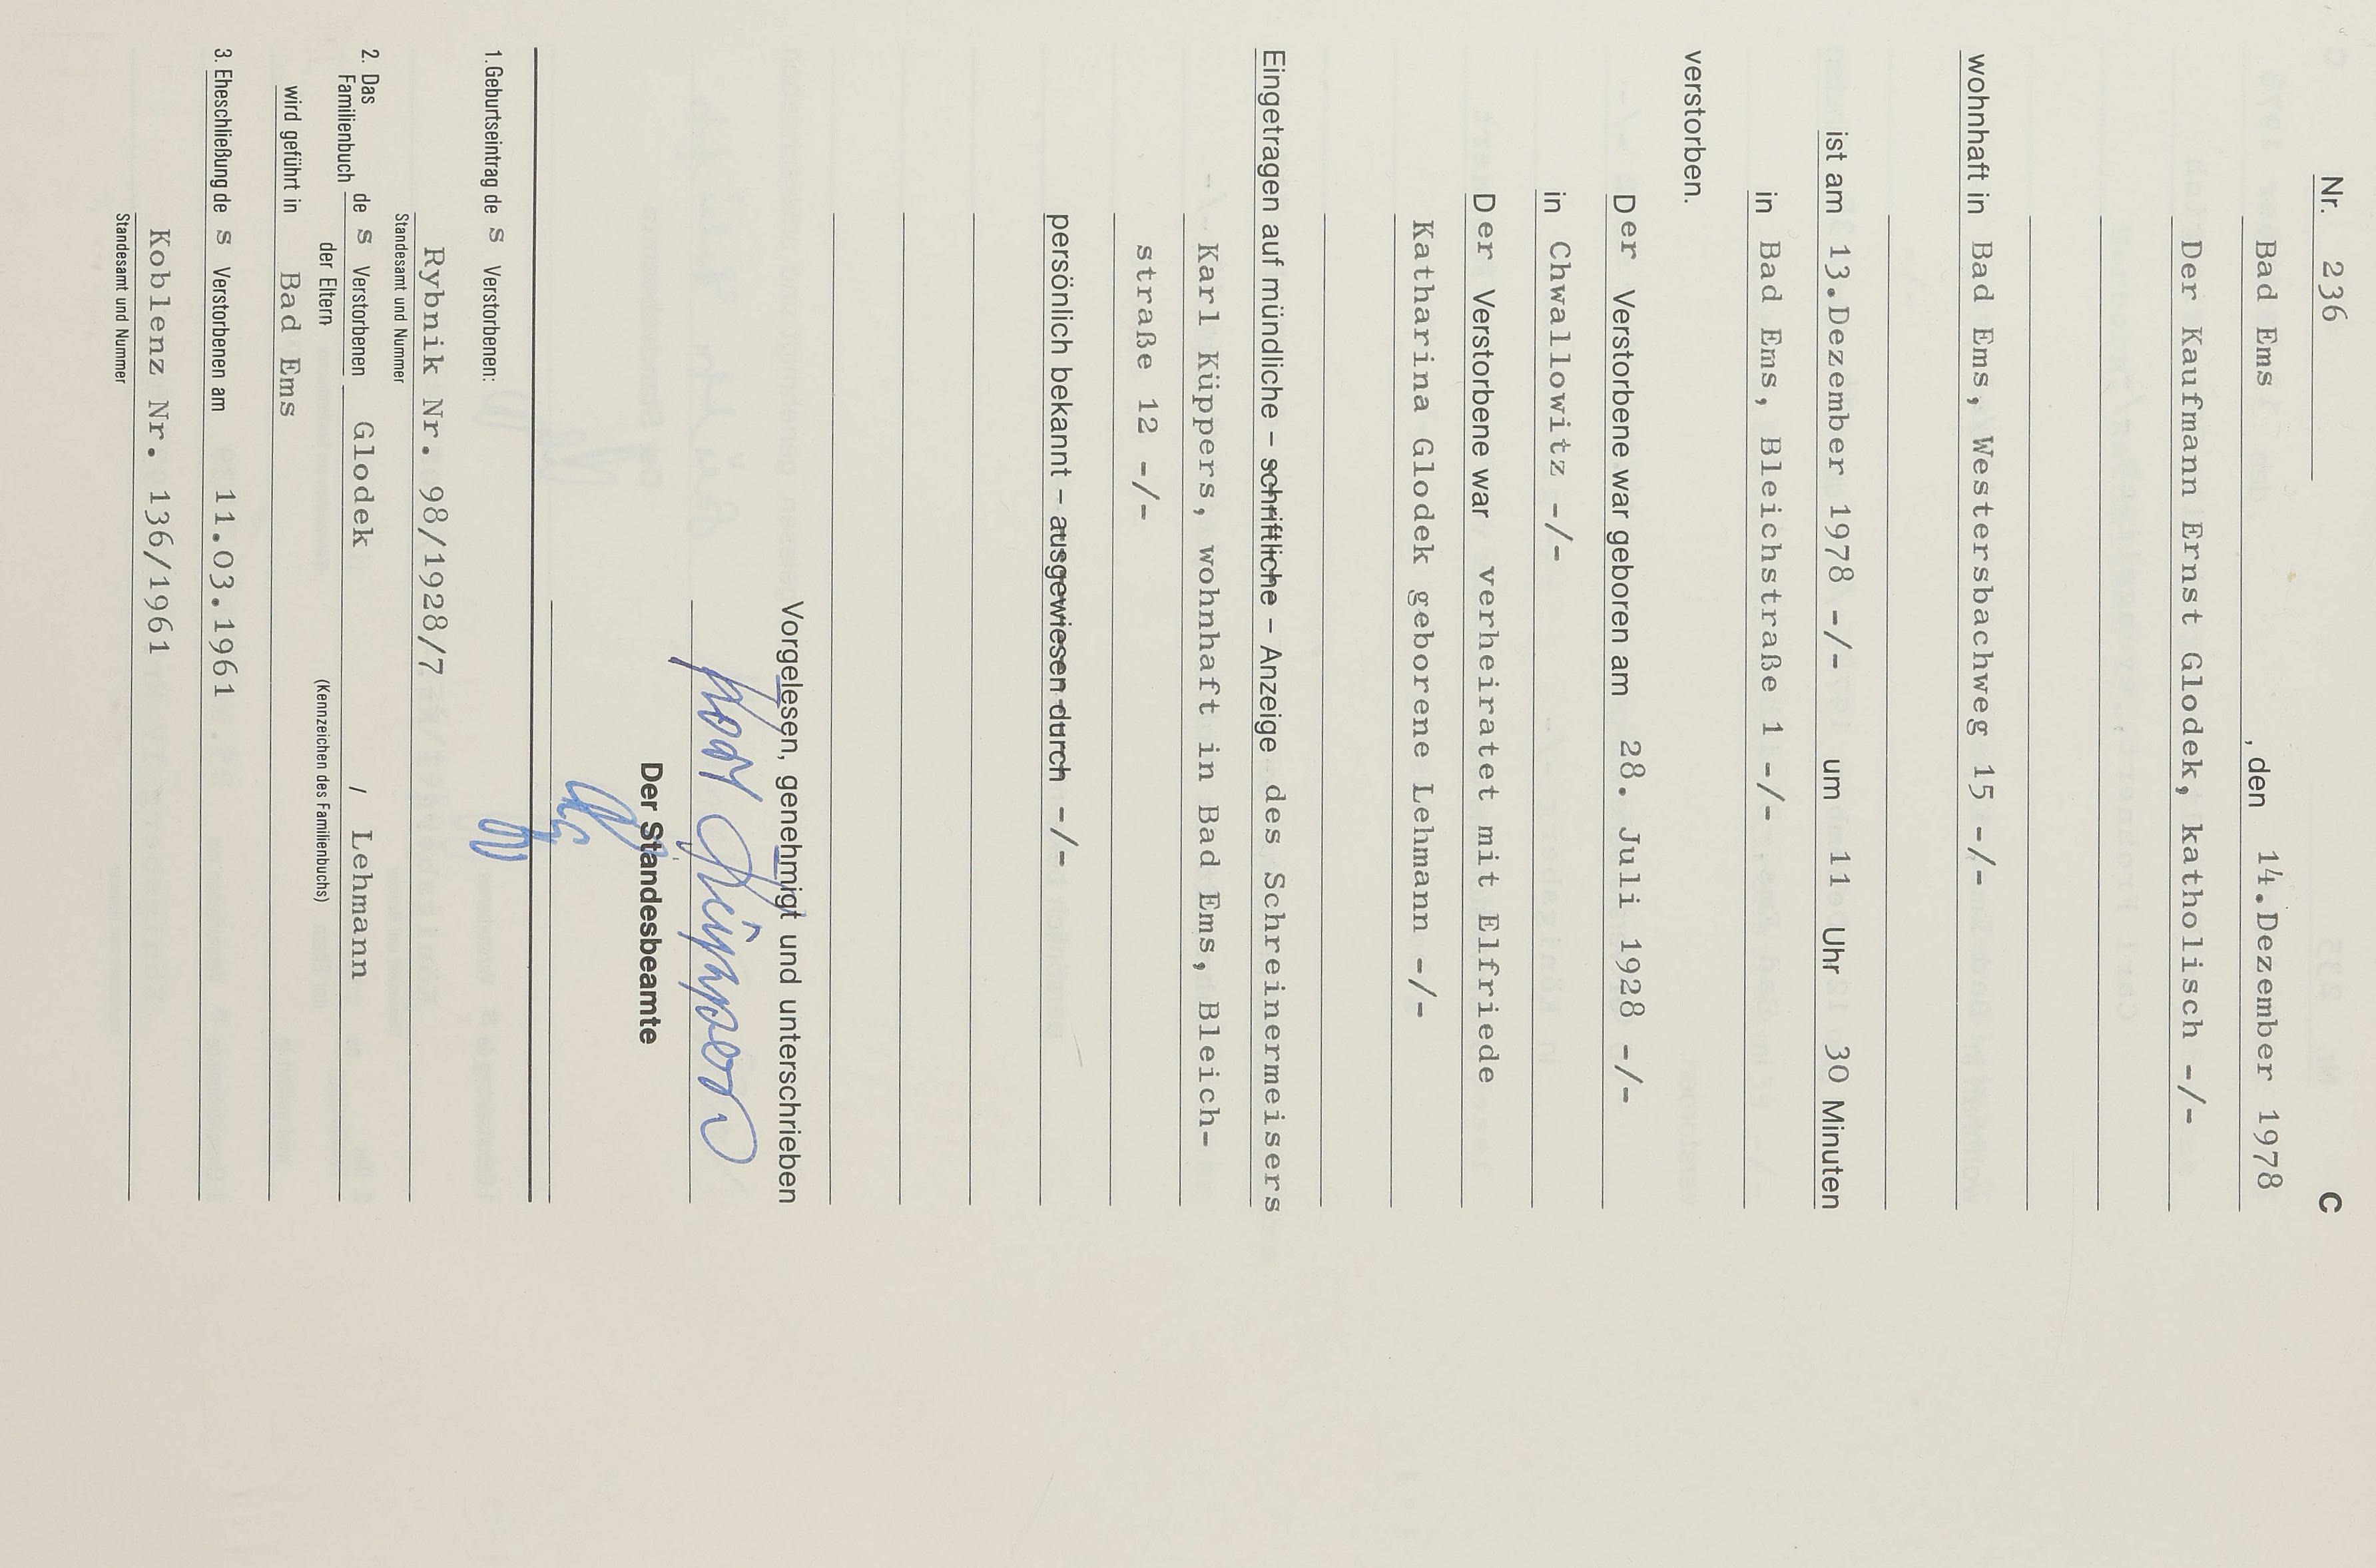 C
Nr. 236
Bad Ems , den 14.Dezember 1978
Der Kaufmann Ernst Glodek, katholisch -/-
wohnhaft in Bad Ems, Westersbachweg 15 -/-
ist am 13.Dezember 1978 -/- um 11 Uhr 30 Minuten
in Bad Ems, Bleichstraße 1 -/-
verstorben.
Der Verstorbene war geboren am 28. Juli 1928 -/-
in Chwallowitz -/-
Der Verstorbene war verheiratet mit Elfriede
Katharina Glodek geborene Lehmann -/-
Eingetragen auf mündliche – schriftliche – Anzeige des Schreinermeisers
Karl Küppers, wohnhaft in Bad Ems, Bleich-
straße 12 -/-
persönlich bekannt – ausgewiesen durch -/-
Vorgelesen, genehmigt und unterschrieben
Karl Küppers
Der Standesbeamte
1. Geburtseintrag des Verstorbenen:
Rybnik Nr. 98/1928/7
Standesamt und Nummer
2. Das Familienbuch des Verstorbenen Glodek / Lehmann
der Eltern (Kennzeichen des Familienbuchs)
wird geführt in Bad Ems
3. Eheschließung des Verstorbenen am 11.03.1961
Koblenz Nr. 136/1961
Standesamt und Nummer